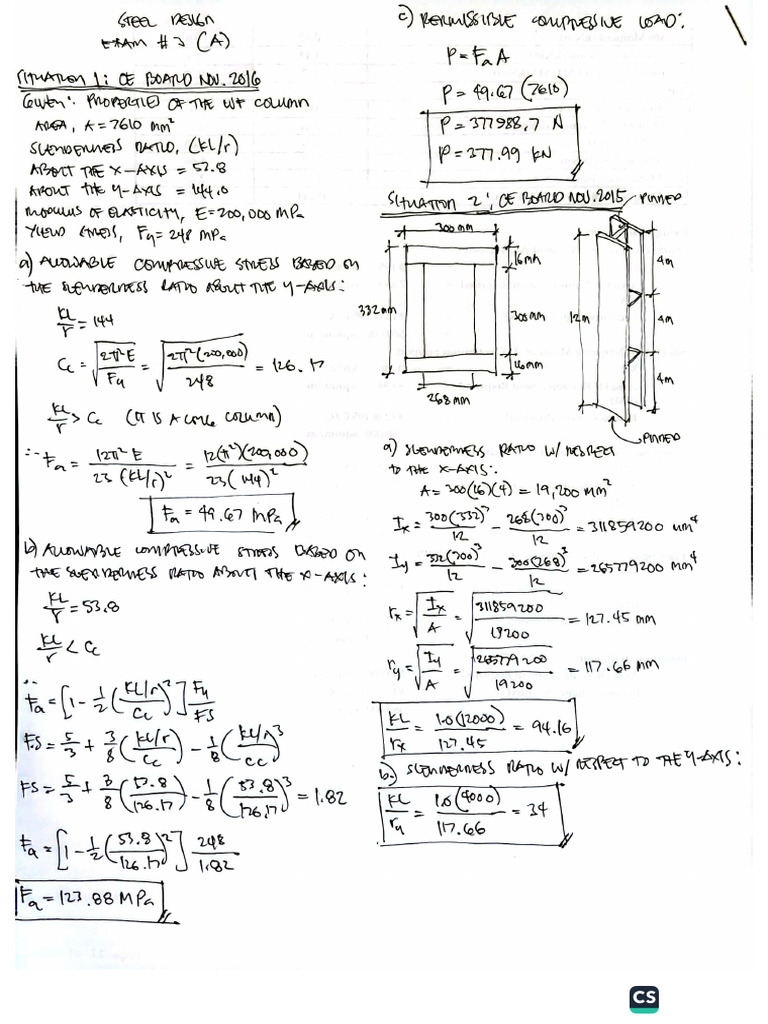 STEEL DESIGN
EXAM #3 (A)
SITUATION 1: CE BOARD NOV. 2016
GIVEN: PROPERTIES OF THE WF COLUMN
AREA, A = 7610 mm²
SLENDERNESS RATIO, (KL/r)
ABOUT THE X-AXIS = 53.8
ABOUT THE Y-AXIS = 144.0
MODULUS OF ELASTICITY, E = 200,000 MPa
YIELD STRESS, Fy = 248 MPa
a) ALLOWABLE COMPRESSIVE STRESS BASED ON
THE SLENDERNESS RATIO ABOUT THE Y-AXIS:
KL/r = 144
Cc = √(2π²E/Fy) = √(2π²(200,000)/248) = 126.17
KL/r > Cc (IT IS A LONG COLUMN)
∴ Fa = 12π²E/23(KL/r)² = 12(π²)(200,000)/23(144)²
Fa = 49.67 MPa
b) ALLOWABLE COMPRESSIVE STRESS BASED ON
THE SLENDERNESS RATIO ABOUT THE X-AXIS:
KL/r = 53.8
KL/r < Cc
∴
Fa = [1 - 1/2 (KL/r/Cc)²] Fy/FS
FS = 5/3 + 3/8 (KL/r/Cc) - 1/8 (KL/r/Cc)³
FS = 5/3 + 3/8 (53.8/126.17) - 1/8 (53.8/126.17)³ = 1.82
Fa = [1 - 1/2 (53.8/126.17)²] 248/1.82
Fa = 123.88 MPa
c) PERMISSIBLE COMPRESSIVE LOAD:
P = Fa A
P = 49.67 (7610)
P = 377988.7 N
P = 377.99 kN
SITUATION 2: CE BOARD NOV. 2015
PINNED
300 mm
16 mm
332 mm
300 mm
16 mm
268 mm
12m
4m
4m
4m
PINNED
a) SLENDERNESS RATIO W/ RESPECT
TO THE X-AXIS:
A = 300(16)(4) = 19,200 mm²
Ix = 300(332)³/12 - 268(300)³/12 = 311859200 mm⁴
Iy = 332(300)³/12 - 300(268)³/12 = 265779200 mm⁴
rx = √(Ix/A) = √(311859200/19200) = 127.45 mm
ry = √(Iy/A) = √(265779200/19200) = 117.66 mm
KL/rx = 1.0(12000)/127.45 = 94.16
b.) SLENDERNESS RATIO W/ RESPECT TO THE Y-AXIS:
KL/ry = 1.0(4000)/117.66 = 34
CS